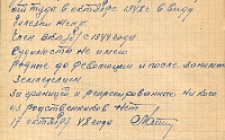 октября 1948 г. в виду
болезни жены.
Член ВКП(б) с 1944 года
Судимости не имею
Родные до революции и после занимались
Земледелием.
За границей и репрессированных никого
из родственников нет
17 октября 48 года